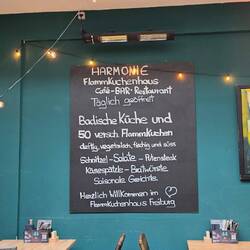 HARMONIE
Flammkuchenhaus
Café-BAR-Restaurant
Täglich geöffnet
Badische Küche und
50 versch. Flammkuchen
deftig, vegetarisch, fischig und süss
Schnitzel-Salate-Putensteak
Käsespätzle-Bratwürste
Saisonale Gerichte
Herzlich Willkommen im
Flammkuchenhaus Freiburg